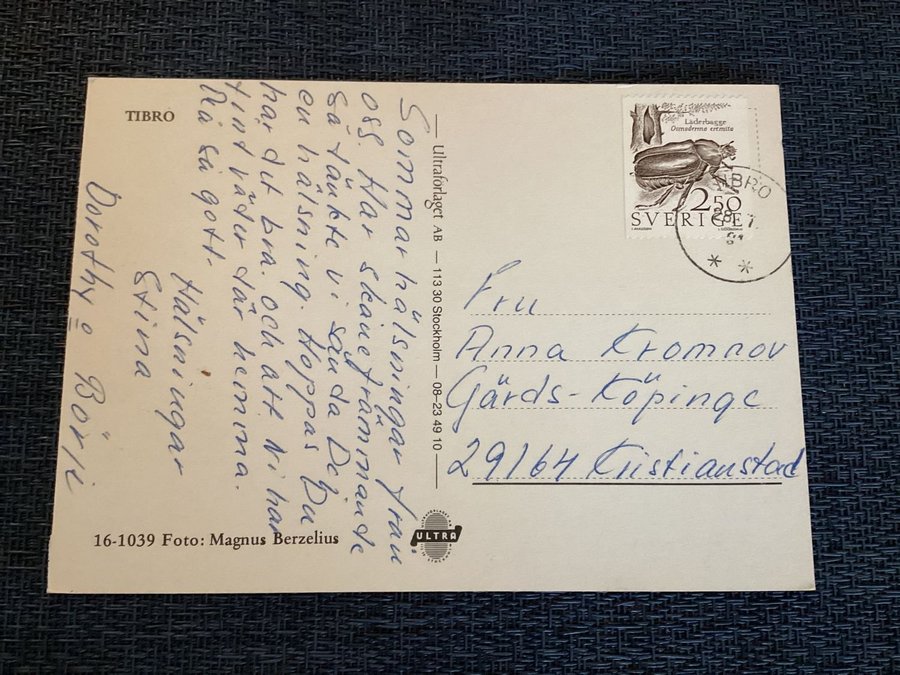 TIBRO
Sommarhälsningar från
oss. Har skånefrämmande
så tänkte vi sända Dej
en hälsning. Hoppas Du
har det bra. och att Ni har
fint väder där hemma.
Må så gott.
Hälsningar
Stina
Dorothy o Börje
Ultraförlaget AB — 113 30 Stockholm — 08-23 49 10
16-1039 Foto: Magnus Berzelius
ULTRA
Läderbagge
Osmoderma eremita
2.50
SVERIGE
TIBRO
28 7
Fru
Anna Kromnov
Gärds-Köpinge
29164 Kristianstad